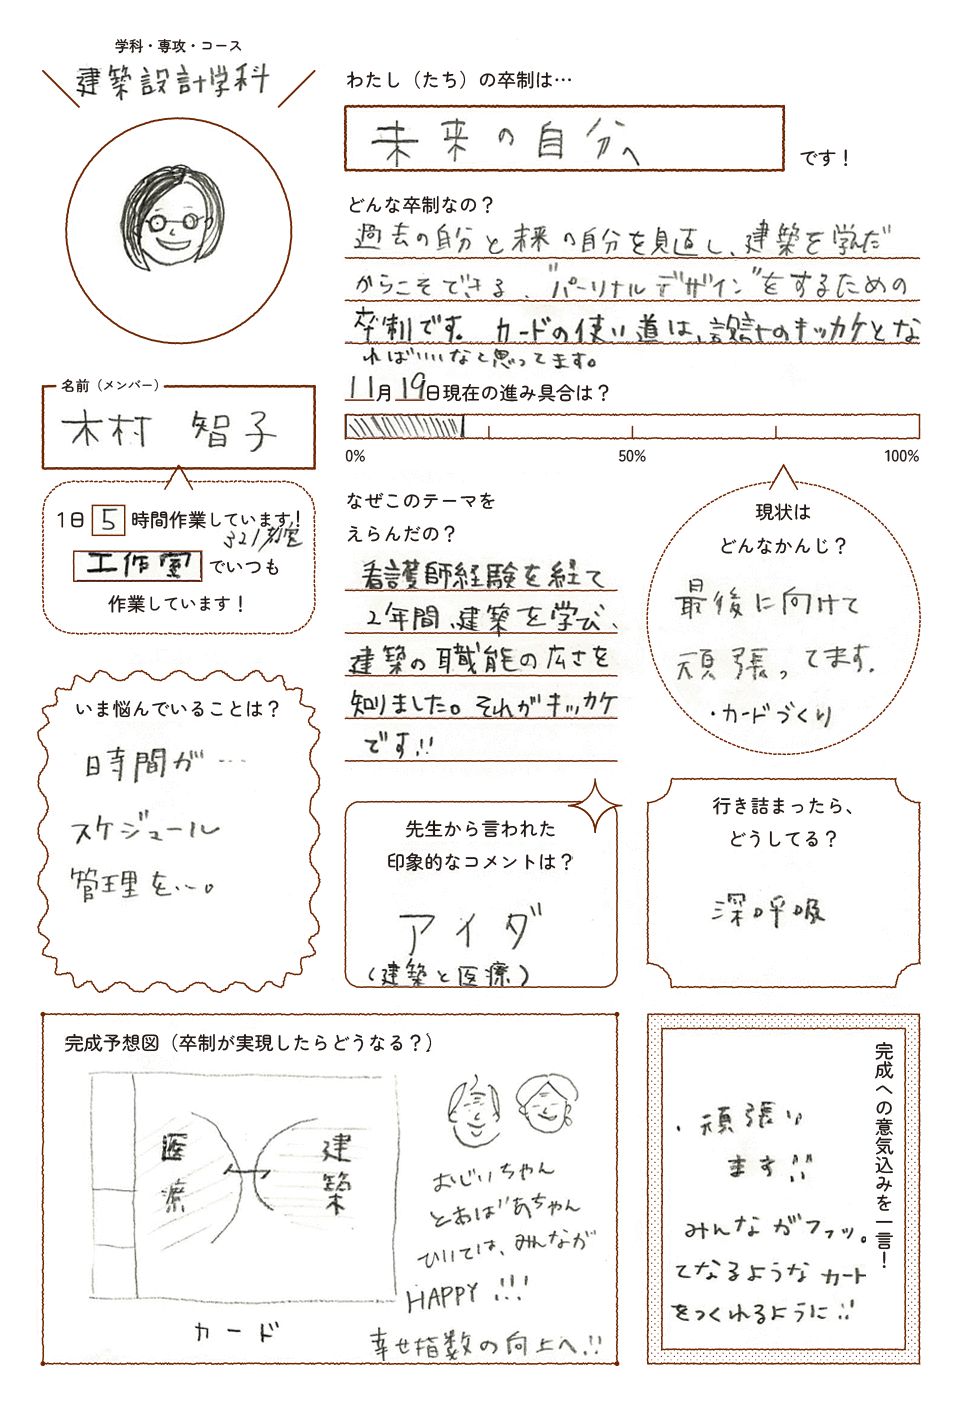 学科・専攻・コース
建築設計学科
わたし（たち）の卒制は…
未来の自分へ
です！
どんな卒制なの？
過去の自分と未来の自分を見直し、建築を学んだ
からこそできる、"パーソナルデザイン"をするための
卒制です。カードの使い道は、設計のキッカケとな
ればいいなと思ってます。
名前（メンバー）
木村 智子
11月19日現在の進み具合は？
0% 50% 100%
1日 5 時間作業しています！
321教室
工作室 でいつも
作業しています！
なぜこのテーマを
えらんだの？
看護師経験を経て
2年間、建築を学び、
建築の職能の広さを
知りました。それがキッカケ
です!!
現状は
どんなかんじ？
最後に向けて
頑張ってます。
・カードづくり
いま悩んでいることは？
日時間が…
スケジュール
管理を…。
先生から言われた
印象的なコメントは？
アイダ
（建築と医療）
行き詰まったら、
どうしてる？
深呼吸
完成予想図（卒制が実現したらどうなる？）
医療
建築
カード
おじいちゃん
とおばあちゃん
ひいては、みんなが
HAPPY!!!
幸せ指数の向上へ!!
完成への意気込みを一言！
・頑張り
ます!!
みんながフフッ。
てなるようなカード
をつくれるように!!